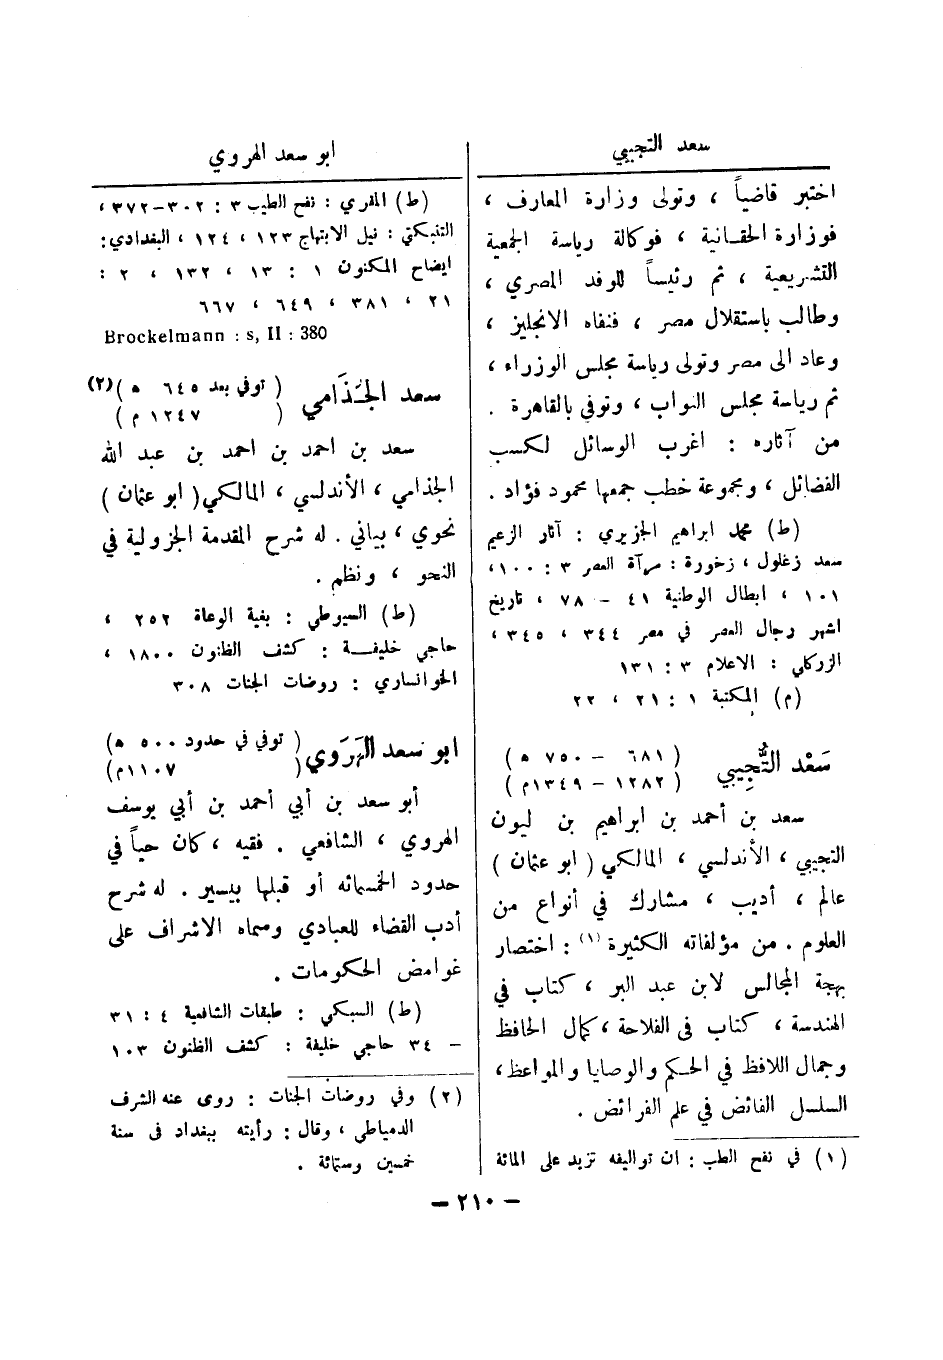 سعد التجيبي
اختير قاضياً ، وتولى وزارة المعارف ،
فوزارة الحقانية ، فوكالة رياسة الجمعية
التشريعية ، ثم رئيساً للوفد المصري ،
وطالب باستقلال مصر ، فنفاه الانجليز ،
وعاد الى مصر وتولى رياسة مجلس الوزراء ،
ثم رياسة مجلس النواب ، وتوفي بالقاهرة .
من آثاره : اغرب الوسائل لكسب
الفضائل ، ومجموعة خطب جمعها محمود فؤاد .
(ط) محمد ابراهيم الجزيري : آثار الزعيم
سعد زغلول ، زخورة : مرآة العصر ٣ : ١٠٠ ،
١٠١ ، ابطال الوطنية ٤١ – ٧٨ ، تاريخ
اشهر رجال العصر في مصر ٣٤٤ ، ٣٤٥ ،
الزركلي : الاعلام ٣ : ١٣١
(م) المكتبة ١ : ٢١ ، ٢٢
سَعْد التُّجِيبي ( ٦٨١ – ٧٥٠ ه )
( ١٢٨٢ – ١٣٤٩م )
سعد بن أحمد بن ابراهيم بن ليون
التجيبي ، الأندلسي ، المالكي ( ابو عثمان )
عالم ، أديب ، مشارك في أنواع من
العلوم . من مؤلفاته الكثيرة (١) : اختصار
بهجة المجالس لابن عبد البر ، كتاب في
الهندسة ، كتاب في الفلاحة ، كمال الحافظ
وجمال اللافظ في الحكم والوصايا والمواعظ ،
السلسل الفائض في علم الفرائض .
(١) في نفح الطب : ان تواليفه تزيد على المائة
ابو سعد الهروي
(ط) المقري : نفح الطيب ٣ : ٣٠٢–٣٧٢ ،
التنبكتي : نيل الابتهاج ١٢٣ ، ١٢٤ ، البغدادي :
ايضاح المكنون ١ : ١٣ ، ١٣٢ ، ٢ :
٢١ ، ٣٨١ ، ٦٤٩ ، ٦٦٧
Brockelmann : s, II : 380
سعد الجُذَامي ( توفي بعد ٦٤٥ ه ) (٢)
( ١٢٤٧ م )
سعد بن احمد بن احمد بن عبد الله
الجذامي ، الأندلسي ، المالكي ( ابو عثمان )
نحوي ، بياني . له شرح المقدمة الجزولية في
النحو ، ونظم .
(ط) السيوطي : بغية الوعاة ٢٥٢ ،
حاجي خليفة : كشف الظنون ١٨٠٠ ،
الخوانساري : روضات الجنات ٣٠٨
ابو سعد الهَرَوي ( توفي في حدود ٥٠٠ ه )
( ١١٠٧م )
أبو سعد بن أبي أحمد بن أبي يوسف
الهروي ، الشافعي . فقيه ، كان حياً في
حدود الخمسمائه أو قبلها بيسير . له شرح
أدب القضاء للعبادي وسماه الاشراف على
غوامض الحكومات .
(ط) السبكي : طبقات الشافعية ٤ : ٣١
– ٣٤ حاجي خليفة : كشف الظنون ١٠٣
(٢) وفي روضات الجنات : روى عنه الشرف
الدمياطي ، وقال : رأيته ببغداد في سنة
خمسين وستمائة .
– ٢١٠ –